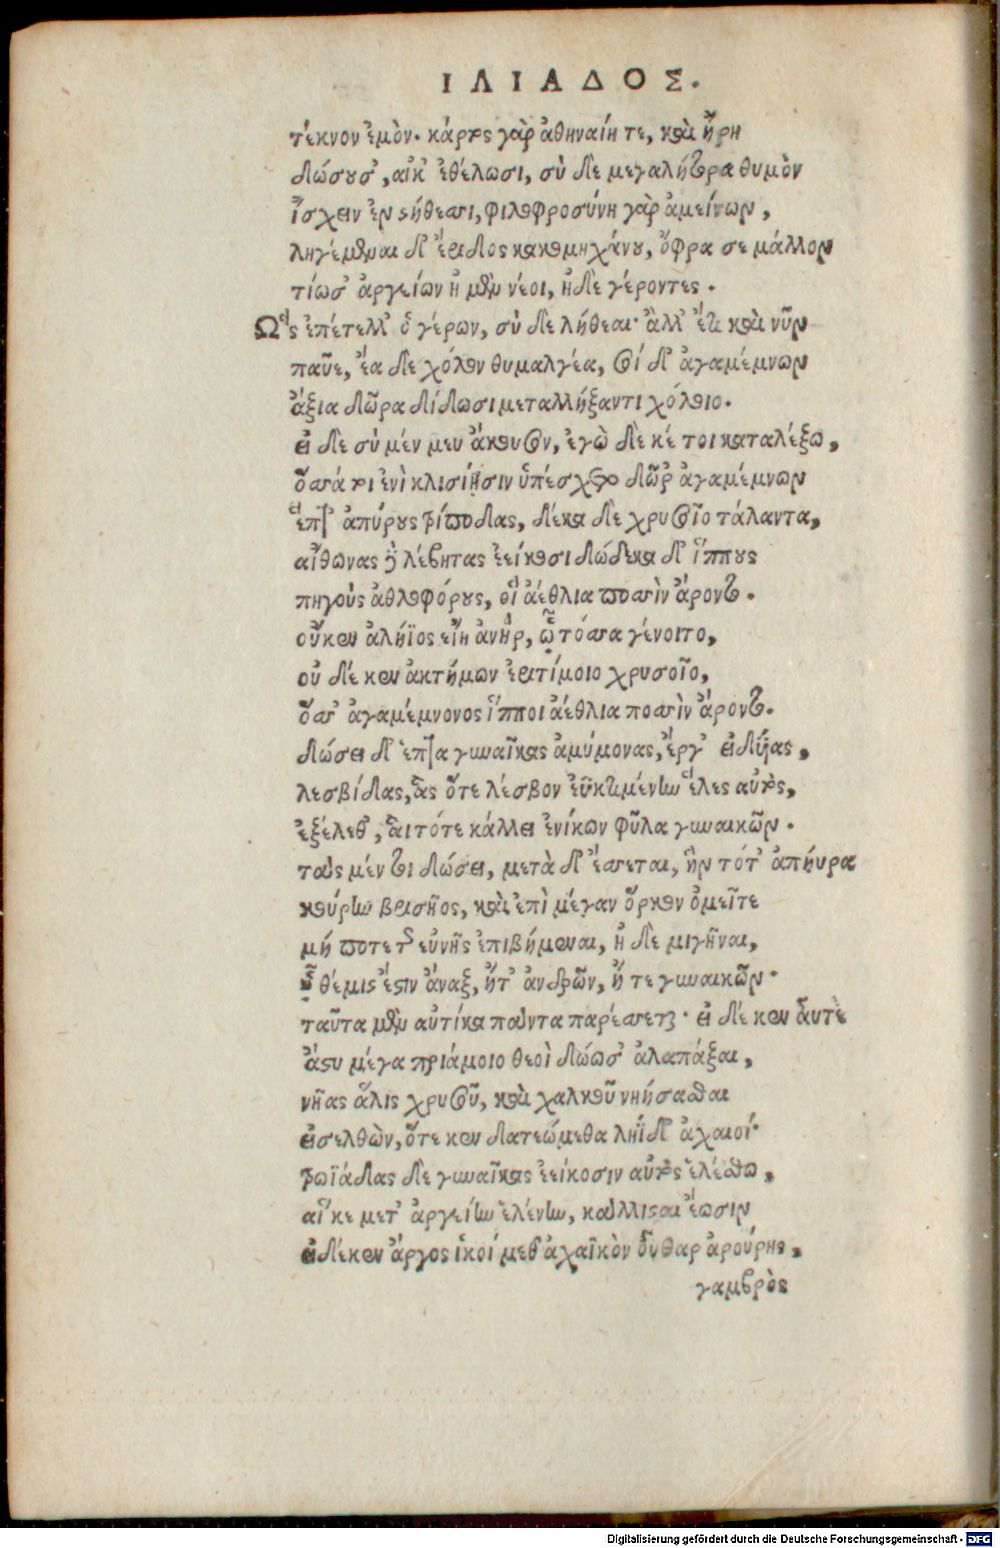 ΙΛΙΑΔΟΣ.
τέκνον ἐμὸν. κάρτος γὰρ ἀθηναίη τε, καὶ ἥρη
δώσουσ', αἴκ' ἐθέλωσι, σὺ δὲ μεγαλήτορα θυμὸν
ἴσχειν ἐν στήθεσσι, φιλοφροσύνη γὰρ ἀμείνων,
ληγέμεναι δ' ἔριδος κακομηχάνου, ὄφρα σε μᾶλλον
τίωσ' ἀργείων ἠ μὲν νέοι, ἠδὲ γέροντες.
Ὣς ἐπέτελλ' ὁ γέρων, σὺ δὲ λήθεαι· ἀλλ' ἔτι καὶ νῦν
παῦε, ἔα δὲ χόλον θυμαλγέα, σοί δ' ἀγαμέμνων
ἄξια δῶρα δίδωσι μεταλλήξαντι χόλοιο.
εἰ δὲ σὺ μέν μευ ἄκουσον, ἐγὼ δὲ κέ τοι καταλέξω,
ὅσσά τοι ἐνὶ κλισίῃσιν ὑπέσχετο δῶρ' ἀγαμέμνων
ἕπτ' ἀπύρους τρίποδας, δέκα δὲ χρυσοῖο τάλαντα,
αἴθωνας δὲ λέβητας ἐείκοσι δώδεκα δ' ἵππους
πηγοὺς ἀθλοφόρους, οἳ ἀέθλια ποσσὶν ἄροντο.
οὔκεν ἀλήϊος εἴη ἀνὴρ, ᾧ τόσσα γένοιτο,
οὐ δέ κεν ἀκτήμων ἐριτίμοιο χρυσοῖο,
ὅσσ' ἀγαμέμνονος ἵπποι ἀέθλια ποσσὶν ἄροντο.
δώσει δ' ἑπτὰ γυναῖκας ἀμύμονας, ἔργ' εἰδυίας,
λεσβίδας, ἃς ὅτε λέσβον ἐϋκτιμένην ἕλες αὐτὸς,
ἐξέλεθ', αἳ τότε κάλλει ἐνίκων φῦλα γυναικῶν.
τὰς μέν τοι δώσει, μετὰ δ' ἔσσεται, ἣν τότ' ἀπηύρα
κούρην βρισῆος, καὶ ἐπὶ μέγαν ὅρκον ὀμεῖτε
μή ποτε τῆς εὐνῆς ἐπιβήμεναι, ἠ δὲ μιγῆναι,
ἣ θέμις ἐστὶν ἄναξ, ἤτ' ἀνδρῶν, ἤ τε γυναικῶν·
ταῦτα μὲν αὐτίκα πάντα παρέσσεται· εἰ δέ κεν αὖτε
ἄστυ μέγα πριάμοιο θεοὶ δώωσ' ἀλαπάξαι,
νῆας ἅλις χρυσοῦ, καὶ χαλκοῦ νηήσασθαι
εἰσελθὼν, ὅτε κεν δατεώμεθα ληΐδ' ἀχαιοί·
τρωϊάδας δὲ γυναῖκας ἐείκοσιν αὐτὸς ἑλέσθω,
αἵ κε μετ' ἀργείην ἑλένην, κάλλισται ἔωσιν
εἰ δέκεν ἄργος ἱκοίμεθ' ἀχαιϊκὸν οὖθαρ ἀρούρης,
γαμβρὸς
Digitalisierung gefördert durch die Deutsche Forschungsgemeinschaft - DFG